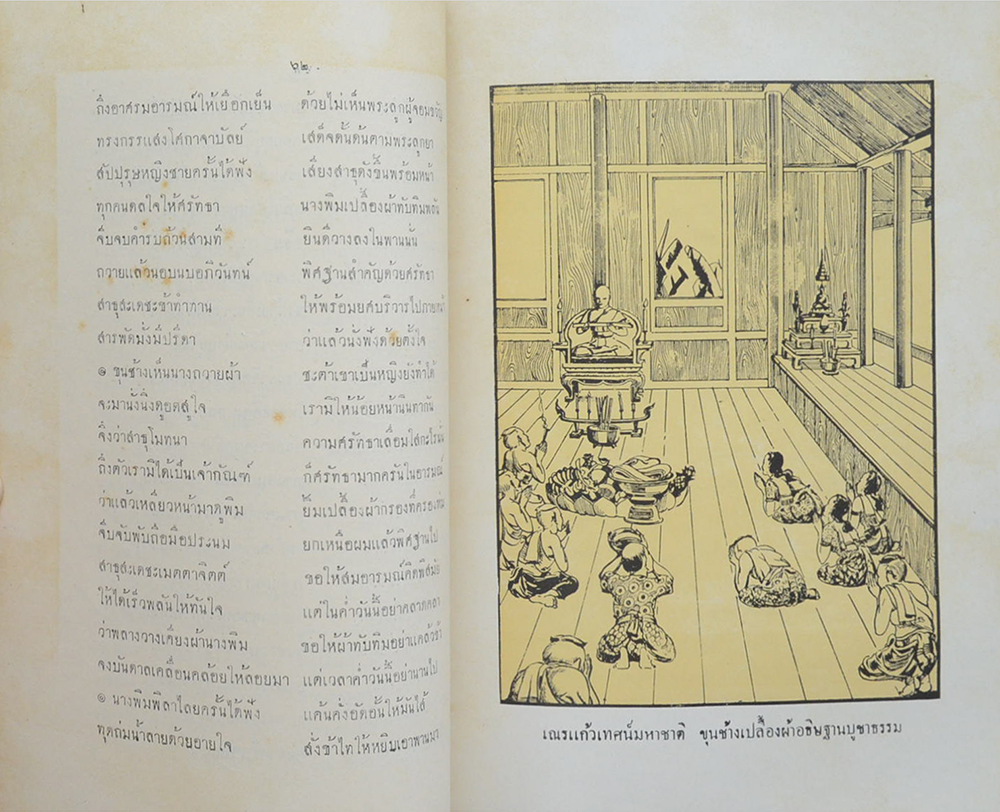 ๖๒
ถึงอาศรมอารมณ์ให้เยือกเย็น ด้วยไม่เห็นพระลูกผู้จอมขวัญ
ทรงกรรแสงโศกาจาบัลย์ เสด็จดั้นด้นตามพระลูกยา
สัปปุรุษหญิงชายครั้นได้ฟัง เสียงสาธุดังขึ้นพร้อมหน้า
ทุกคนดลใจให้ศรัทธา นางพิมเปลื้องผ้าทับทิมพลัน
จีบจบคำรบถ้วนสามที ยินดีวางลงในพานนั้น
ถวายแล้วนอบนบอภิวันทน์ พิศฐานสำคัญด้วยศรัทธา
สาธุสะเดชะข้าทำทาน ให้พร้อมยศบริวารไปภายหน้า
สารพัดมั่งมีปรีดา ว่าแล้วนั่งฟังด้วยตั้งใจ
๏ ขุนช้างเห็นนางถวายผ้า ชะต้าเขาเป็นหญิงยังทำได้
จะมานั่งนิ่งดูอดสูใจ เรามิให้น้อยหน้านินทากัน
จึ่งว่าสาธุโมทนา ความศรัทธาเลื่อมใสกะไรนั่น
ถึงตัวเรามิได้เป็นเจ้ากัณฑ์ ก็ศรัทธามากครันในอารมณ์
ว่าแล้วเหลียวหน้ามาดูพิม ยิ้มเปลื้องผ้ากรองที่ครองห่ม
จีบจับพับถือมือประนม ยกเหนือผมแล้วพิศฐานไป
สาธุสะเดชะเมตตาจิตต์ ขอให้สมอารมณ์คิดพิสมัย
ให้ได้เร็วพลันให้ทันใจ แต่ในค่ำวันนี้อย่าคลาดคลา
ว่าพลางวางเคียงผ้านางพิม ขอให้ผ้าทับทิมอย่าแคล้วข้า
จงบันดาลเคลื่อนคล้อยให้ลอยมา แต่เวลาค่ำวันนี้อย่านานไป
๏ นางพิมพิลาไลยครั้นได้ฟัง แค้นคั่งอัดอั้นให้มันไส้
ทุดถ่มน้ำลายด้วยอายใจ สั่งข้าไทให้หยิบเอาพานมา
เณรแก้วเทศน์มหาชาติ ขุนช้างเปลื้องผ้าอธิษฐานบูชาธรรม